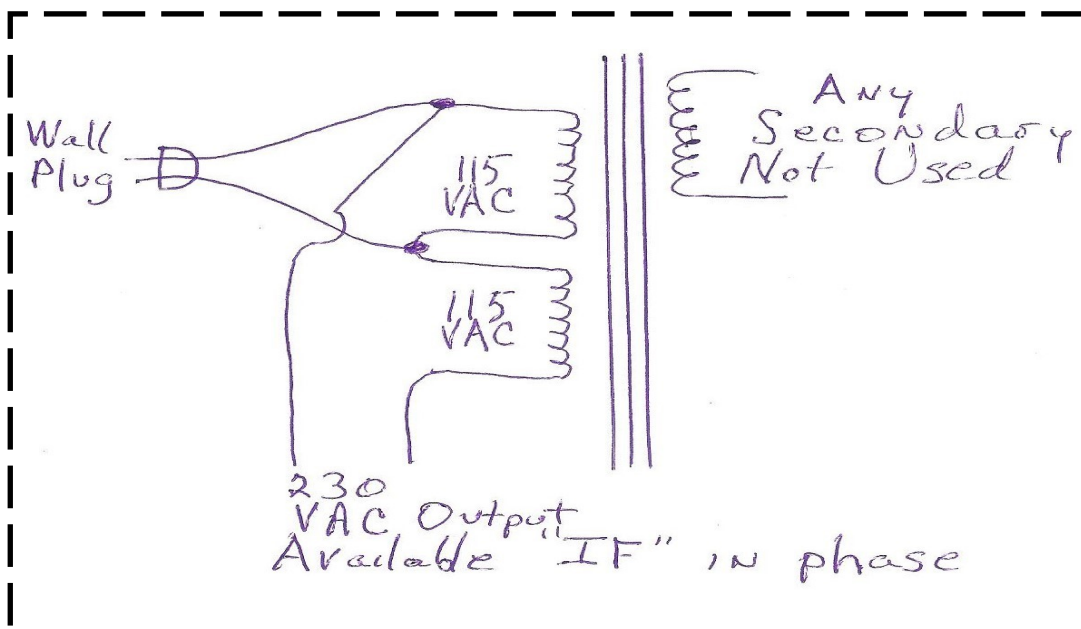 Wall
Plug
115
VAC
115
VAC
Any
Secondary
Not Used
230
VAC Output
Available "IF" in phase